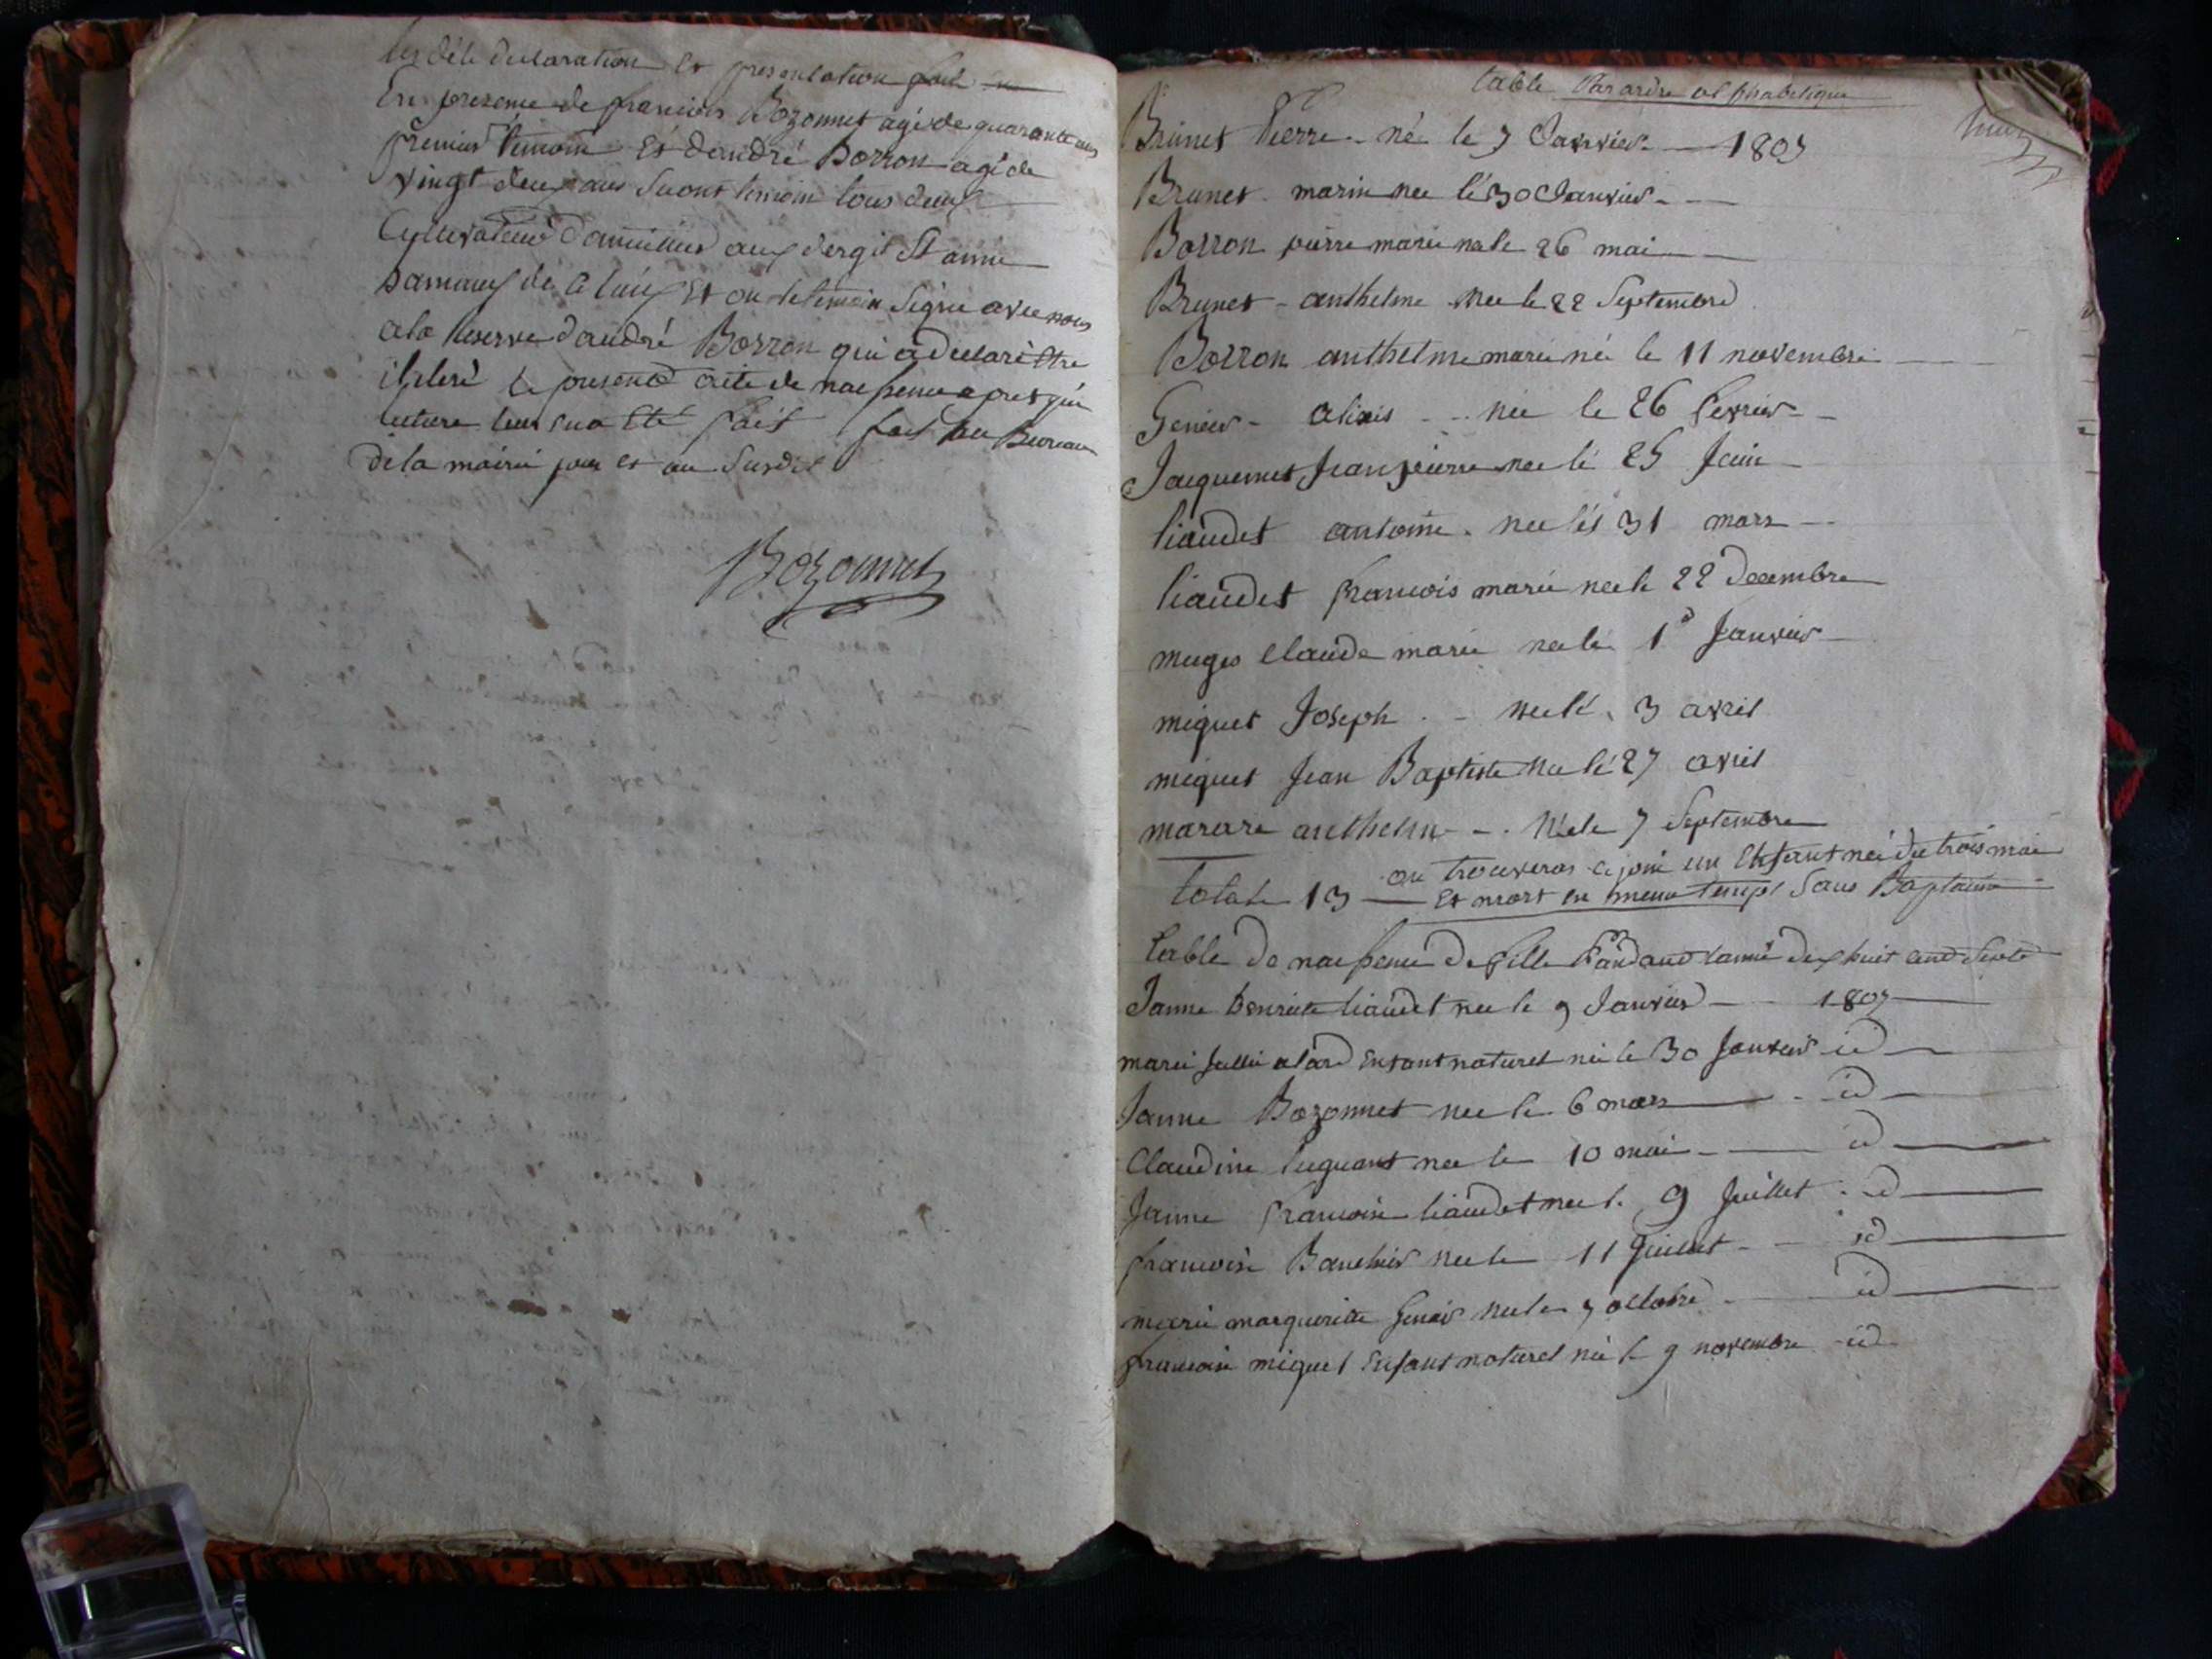 declaration et presentation fait
En presence de francois Bozonnet agé de quarante ans
premier temoin Et dandré Borron agé de
vingt deux ans temoin tous deux
St anne
de Et on le temoin signe avec nous
ala Reserve dandré Borron qui a declaré Etre
le present acte de naissence apres que
lecture leur sua Eté fait fait au Bureau
de la mairie jour et an Susdit
Bozonnet
table Par ordre alphabetique
Brunet Pierre né le 7 Janvier 1807
Brunet marin nee lé 30 Janvier
Borron pierre marie ne le 26 mai
Brunet anthelme nee le 22 Septembre
Borron anthelme marie né le 11 novembre
Genier alixis née le 26 fevrier
Jacquemet Jean pierre nee lé 25 Juin
liaudet antoine nee lés 31 mars
liaudet francois marie nee le 22 decembre
Claude marie nee le 1er Janvier
miguet Joseph nee lé 3 avril
miguet Jean Baptiste nee lé 27 avril
anthelme Né le 7 Septembre
total 13 on trouveras ci join un Enfant née du trois mai
Et mort en meme temps Sans Baptaime
table de naissence de fille Pandand lannée dix huit cend Septe
Janne henriete liaudet nee le 9 Janvier 1807
marie Jullie alard Enfant naturel née le 30 Janvier id
Janne Bozonnet nee le 6 mars id
Claudine nee le 10 mai id
Janne francoise liaudet nee le 9 Juillet id
francoise nee le 11 Juillet id
marie marguerite Genier nee le 7 octobre id
francoise miguet Enfant naturel née le 9 novembre id